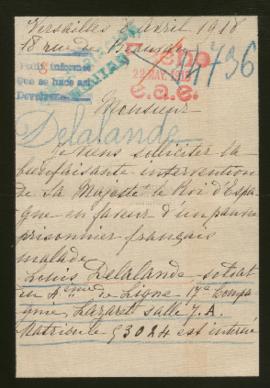 Versailles avril 1918
18 rue de
Pedir informes
que se haga así
28 MAY. 1918
4736
e.a.e.
Monsieur
Delalande
Je viens solliciter la
bienfaisante intervention
de Sa Majesté le Roi d'Espa
gne en faveur d'un pauvre
prisonnier français
malade
Louis Delalande soldat
de Ligne 17e Compa
gnie, Lazaret salle 7. A.
Matricule 53024 est interné